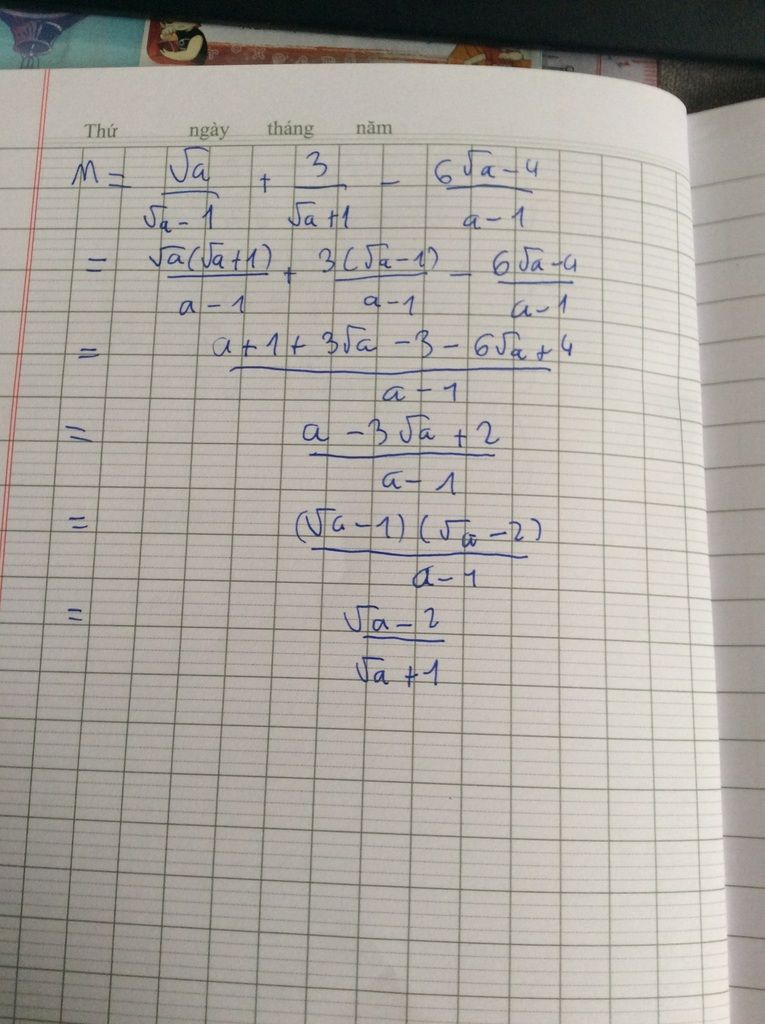 Thứ ngày tháng năm
M = √a/(√a - 1) + 3/(√a + 1) - (6√a - 4)/(a - 1)
= √a(√a + 1)/(a - 1) + 3(√a - 1)/(a - 1) - (6√a - 4)/(a - 1)
= (a + 1 + 3√a - 3 - 6√a + 4)/(a - 1)
= (a - 3√a + 2)/(a - 1)
= (√a - 1)(√a - 2)/(a - 1)
= (√a - 2)/(√a + 1)